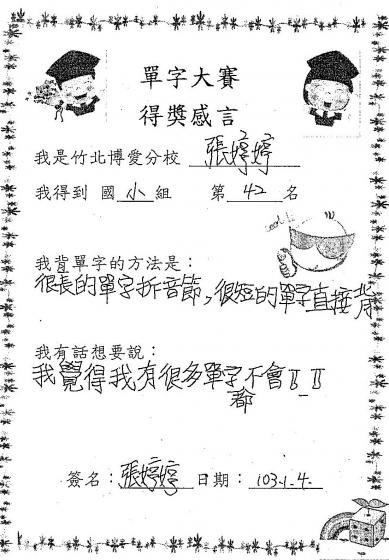 單字大賽
得獎感言
我是竹北博愛分校 張婷婷
我得到 國小組 第 42 名
cool!
我背單字的方法是：
很長的單字拆音節，很短的單字直接背
我有話想要說：
我覺得我有很多單字不會ㄒ_ㄒ
都
簽名：張婷婷 日期：103.1.4.